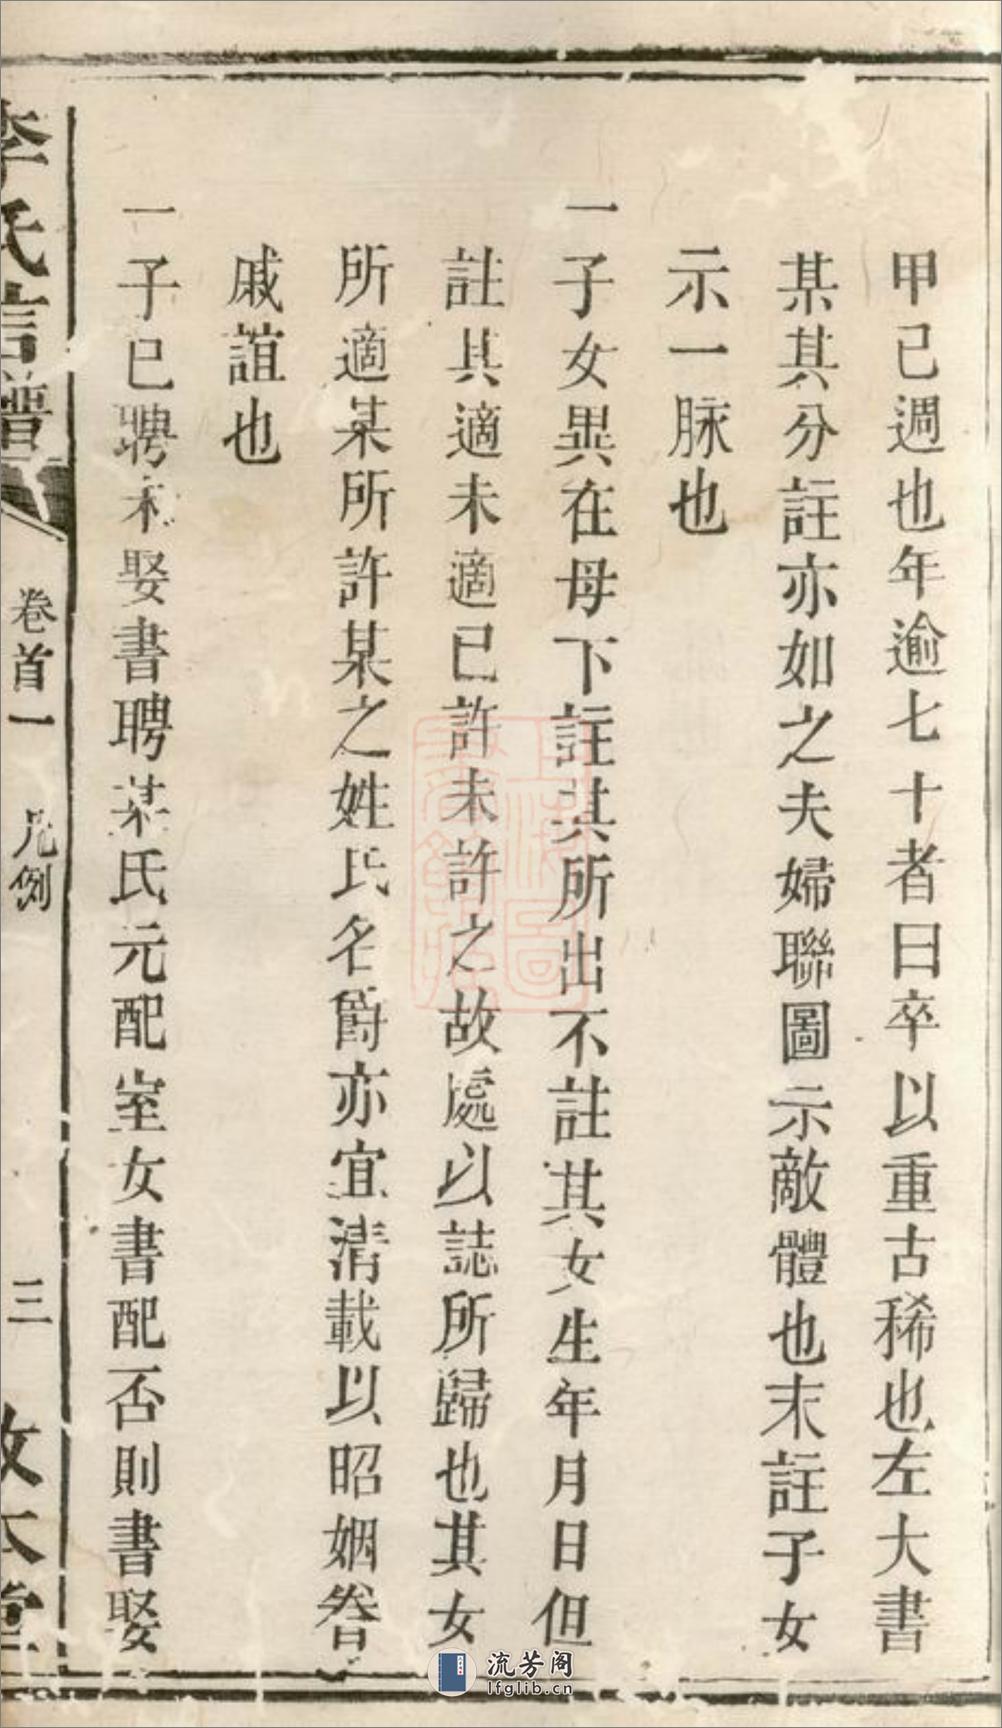 甲已週也年逾七十者曰卒以重古稀也左大書
某其分註亦如之夫婦聯圖示敵體也末註子女
示一脉也
一子女異在母下註其所出不註其女生年月日但
註其適未適已許未許之故處以誌所歸也其女
所適某所許某之姓氏名爵亦宜清載以昭姻眷
戚誼也
一子已聘未娶書聘某氏元配室女書配否則書娶
李氏宗譜
卷首一
凡例
三
敦本堂
流芳阁
lfglib.cn